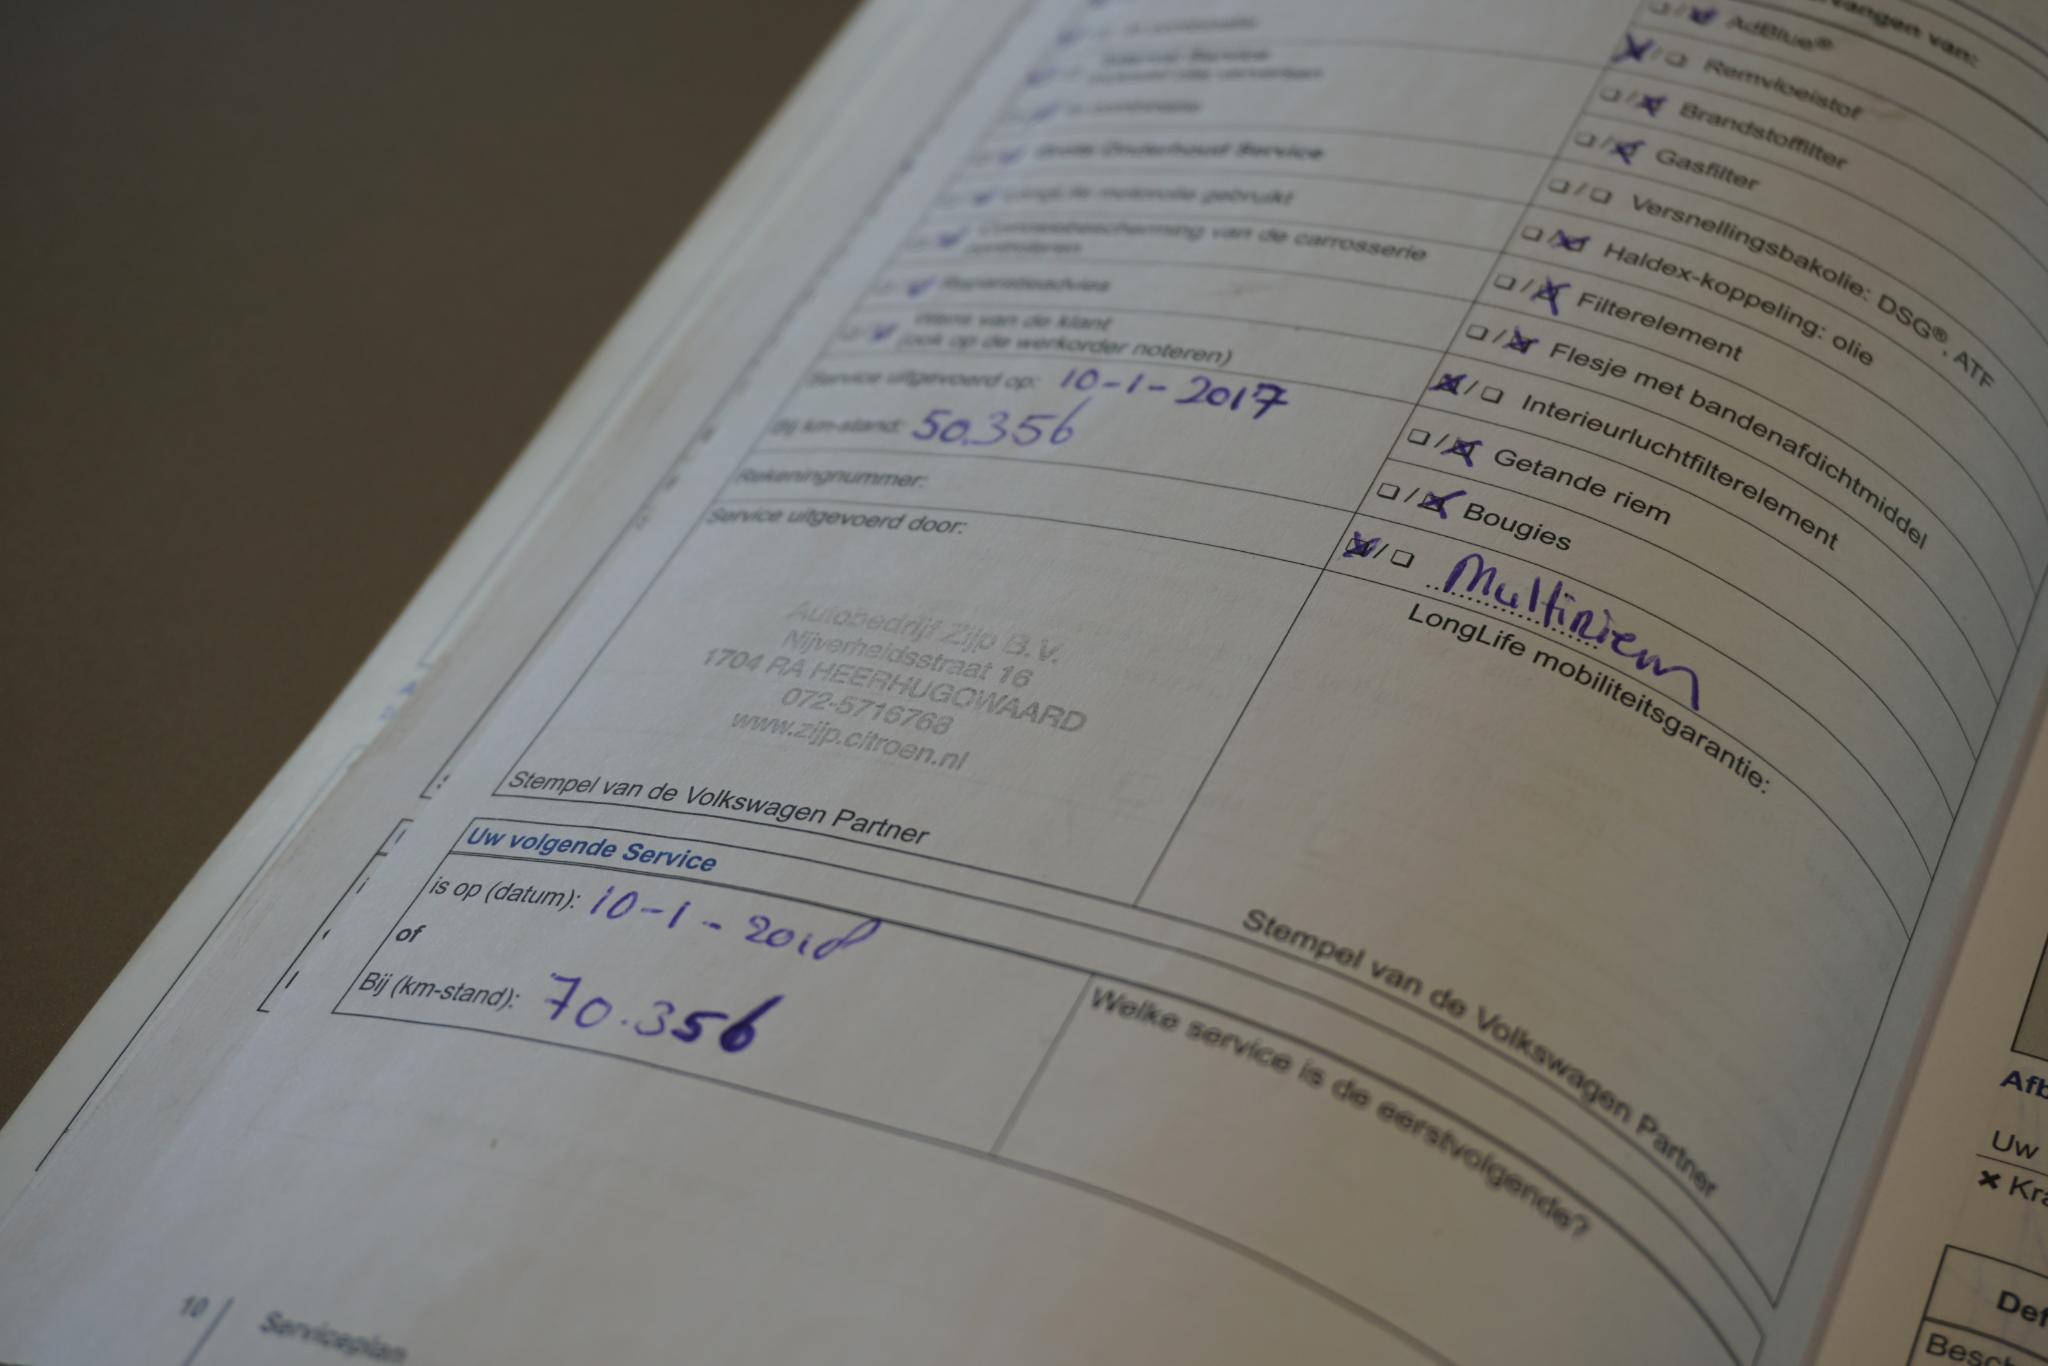 Service
Gratis Onderhoud Service
LongLife motorolie gebruikt
Corrosiebescherming van de carrosserie
controleren
Reparatieadvies
Wens van de klant
(ook op de werkorder noteren)
Service uitgevoerd op: 10-1-2017
Bij km-stand: 50.356
Rekeningnummer:
Service uitgevoerd door:
Autobedrijf Zijp B.V.
Nijverheidsstraat 16
1704 RA HEERHUGOWAARD
072-5716768
www.zijp.citroen.nl
Stempel van de Volkswagen Partner
van:
AdBlue®
Remvloeistof
Brandstoffilter
Gasfilter
Versnellingsbakolie: DSG®, ATF
Haldex-koppeling: olie
Filterelement
Flesje met bandenafdichtmiddel
Interieurluchtfilterelement
Getande riem
Bougies
Multiriem
LongLife mobiliteitsgarantie:
Stempel van de Volkswagen Partner
Uw volgende Service
is op (datum): 10-1-2018
of
Bij (km-stand): 70.356
Welke service is de eerstvolgende?
10 Serviceplan
Afb
Uw
Kra
Def
Besch